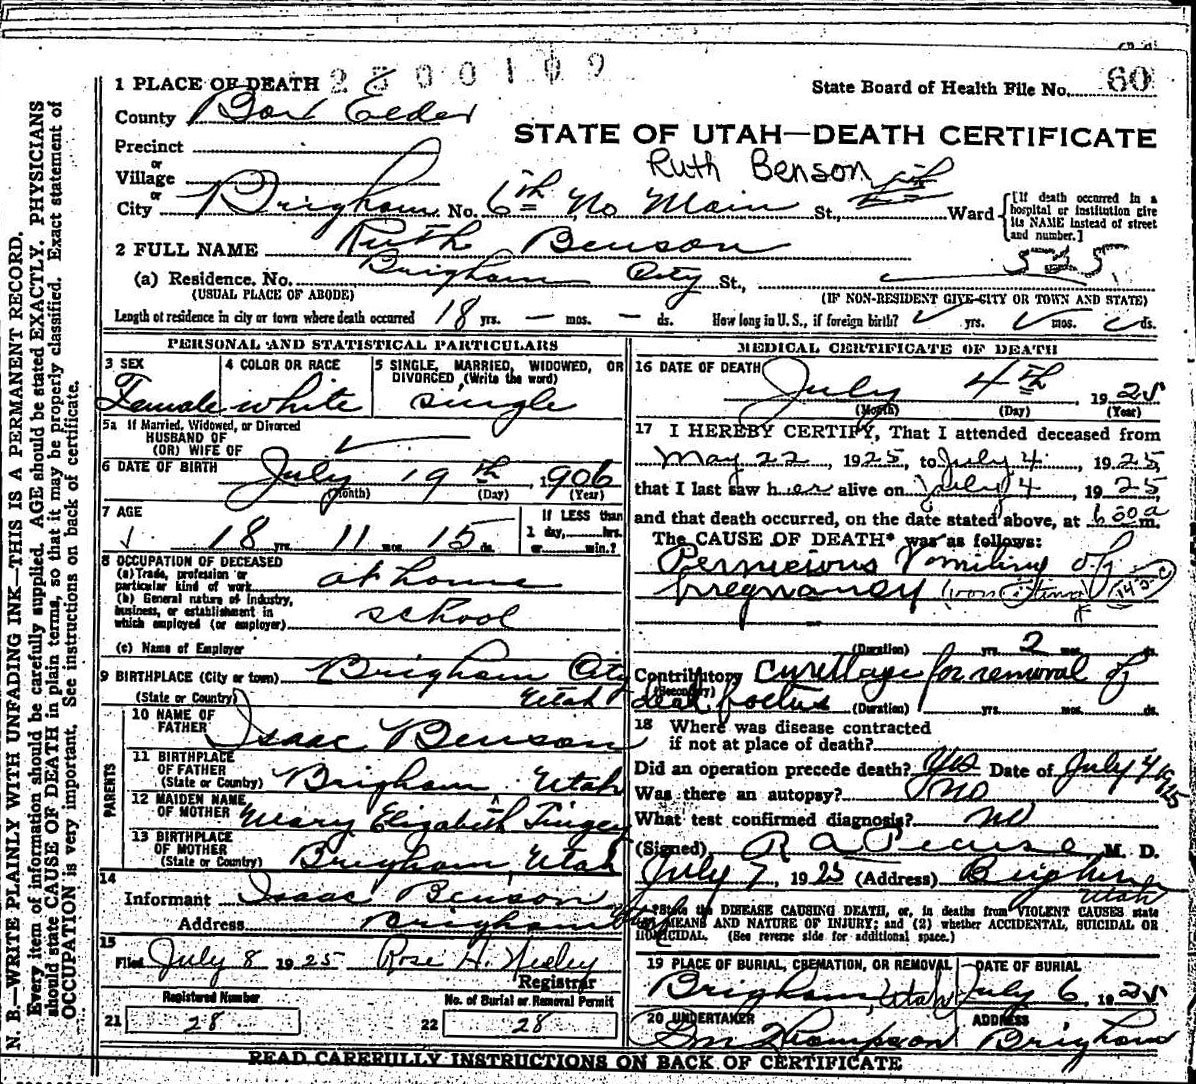 1 PLACE OF DEATH 2500109
State Board of Health File No. 60
County Box Elder
STATE OF UTAH—DEATH CERTIFICATE
Precinct
or
Village
Ruth Benson
or
City Brigham No. 6th No Main St., Ward
[If death occurred in a hospital or institution give its NAME instead of street and number.]
2 FULL NAME Ruth Benson
525
(a) Residence, No. Brigham City St.,
(USUAL PLACE OF ABODE) (IF NON-RESIDENT GIVE CITY OR TOWN AND STATE)
Length of residence in city or town where death occurred 18 yrs. — mos. — ds. How long in U. S., if foreign birth? yrs. mos. ds.
PERSONAL AND STATISTICAL PARTICULARS
3 SEX Female
4 COLOR OR RACE white
5 SINGLE, MARRIED, WIDOWED, OR DIVORCED, (Write the word) single
5a If Married, Widowed, or Divorced
HUSBAND OF
(OR) WIFE OF
6 DATE OF BIRTH July 19th 1906
(Month) (Day) (Year)
7 AGE 18 yrs. 11 mos. 15 ds.
If LESS than 1 day, hrs. or min.?
8 OCCUPATION OF DECEASED
(a) Trade, profession or particular kind of work at home
(b) General nature of industry, business, or establishment in which employed (or employer) school
(c) Name of Employer
9 BIRTHPLACE (City or town) Brigham City
(State or Country) Utah
PARENTS
10 NAME OF FATHER Isaac Benson
11 BIRTHPLACE OF FATHER (State or Country) Brigham, Utah
12 MAIDEN NAME OF MOTHER Mary Elizabeth Tingey
13 BIRTHPLACE OF MOTHER (State or Country) Brigham, Utah
14
Informant Isaac Benson
Address Brigham Utah
15
Filed July 8 1925 Rose H. Neeley
Registrar
Registered Number
No. of Burial or Removal Permit
21 28
22 28
MEDICAL CERTIFICATE OF DEATH
16 DATE OF DEATH July 4th 1925
(Month) (Day) (Year)
17 I HEREBY CERTIFY, That I attended deceased from
May 22, 1925, to July 4, 1925,
that I last saw her alive on July 4, 1925,
and that death occurred, on the date stated above, at 600a m.
The CAUSE OF DEATH* was as follows:
Pernicious Vomiting of
pregnancy
(Duration) yrs. 2 mos. ds.
Contributory curettage for removal of
(Secondary)
dead foetus (Duration) yrs. mos. ds.
18 Where was disease contracted
if not at place of death?
Did an operation precede death? Yes Date of July 4 1925
Was there an autopsy? No
What test confirmed diagnosis? no
(Signed) R A Pearse M. D.
July 7, 1925 (Address) Brigham
Utah
*State the DISEASE CAUSING DEATH, or, in deaths from VIOLENT CAUSES state
(1) MEANS AND NATURE OF INJURY; and (2) whether ACCIDENTAL, SUICIDAL OR
HOMICIDAL. (See reverse side for additional space.)
19 PLACE OF BURIAL, CREMATION, OR REMOVAL Brigham, Utah
DATE OF BURIAL July 6, 1925
20 UNDERTAKER Thompson
ADDRESS Brigham
READ CAREFULLY INSTRUCTIONS ON BACK OF CERTIFICATE
N. B.—WRITE PLAINLY WITH UNFADING INK—THIS IS A PERMANENT RECORD.
Every item of information should be carefully supplied. AGE should be stated EXACTLY. PHYSICIANS
should state CAUSE OF DEATH in plain terms, so that it may be properly classified. Exact statement of
OCCUPATION is very important. See instructions on back of certificate.